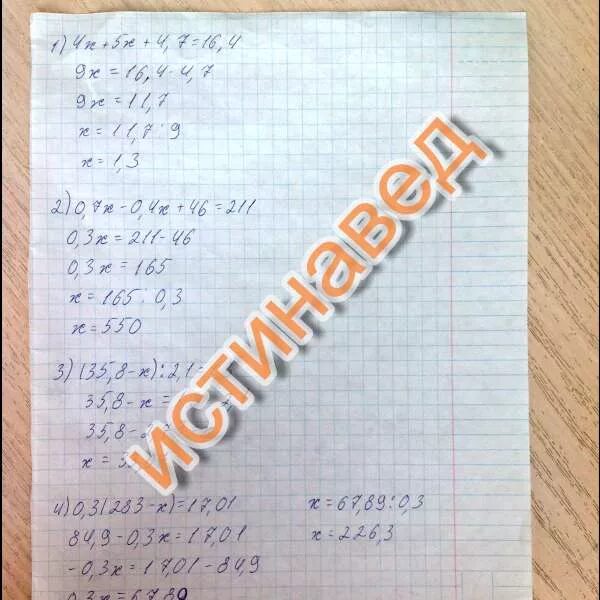 1) 4x + 5x + 4,7 = 16,4
9x = 16,4 - 4,7
9x = 11,7
x = 11,7 : 9
x = 1,3
2) 0,7x - 0,4x + 46 = 211
0,3x = 211 - 46
0,3x = 165
x = 165 : 0,3
x = 550
3) (35,8 - x) : 2,1
35,8 - x =
35,8 -
x =
4) 0,3(283 - x) = 17,01
84,9 - 0,3x = 17,01
-0,3x = 17,01 - 84,9
0,3x = 67,89
x = 67,89 : 0,3
x = 226,3
истинавед